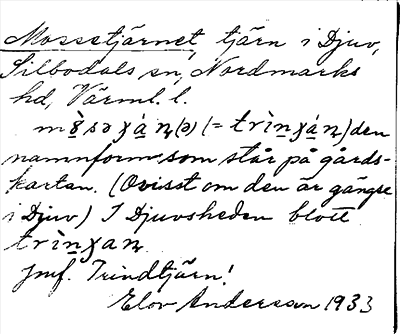 Mossetjärnet, tjärn i Djuv,
Silbodals sn, Nordmarks
hd, Värml. l.
mo̤̊̀səχá̤ṇ(ə) (= trìṉχá̤ṇ) den
namnform som står på gårds-
kartan. (Ovisst om den är gängse
i Djuv) I Djuvsheden blott
trìṉχaṇ.
Jmf. Trindtjärn!
Elov Andersson 1933